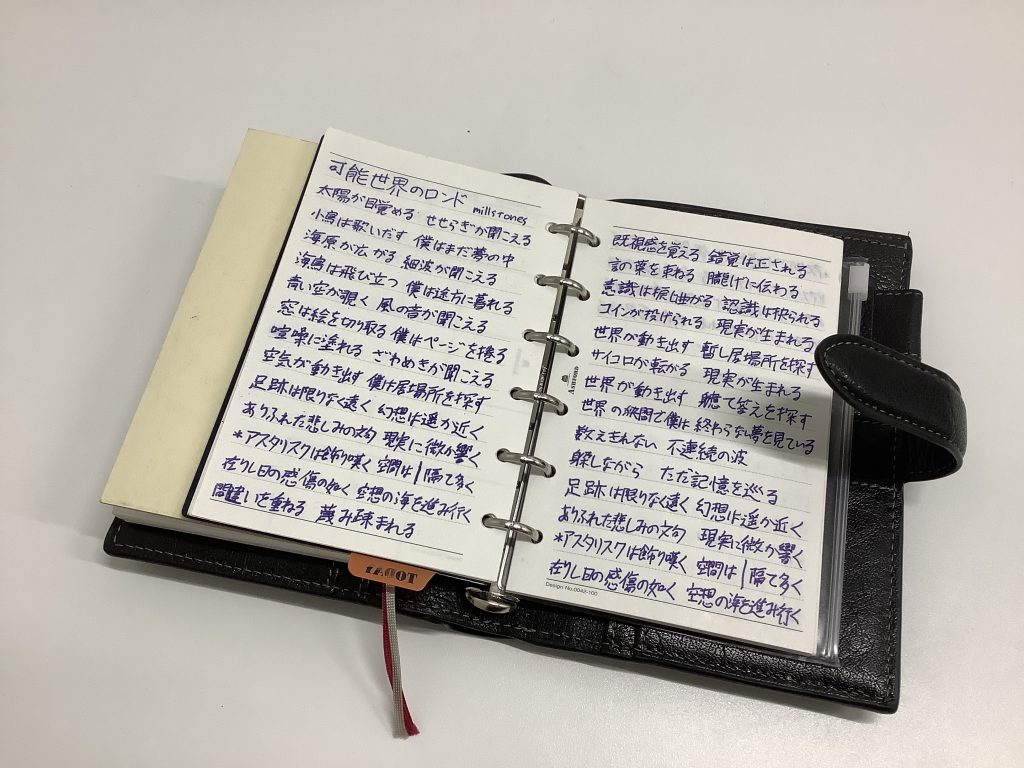 可能世界のロンド millstones
太陽が目覚める せせらぎが聞こえる
小鳥は歌いだす 僕はまだ夢の中
海原が広がる 細波が聞こえる
海鳥は飛び立つ 僕は途方に暮れる
青い空が覗く 風の音が聞こえる
窓は絵を切り取る 僕はページを捲る
喧噪に塗れる ざわめきが聞こえる
空気が動き出す 僕は居場所を探す
足跡は限りなく遠く 幻想は遥か近く
ありふれた悲しみの文句 現実に微か響く
*アスタリスクは飾り嘆く 空間は1隔て多く
在りし日の感傷の如く 空想の海を進み行く
間違いを重ねる 蔑み疎まれる
既視感を覚える 錯覚は正される
言の葉を束ねる 朧げに伝わる
意識は振じ曲がる 認識は
コインが投げられる 現実が生まれる
世界が動き出す 暫し居場所を探す
サイコロが転がる 現実が生まれる
世界が動き出す 軈て答えを探す
世界の狭間で僕は 終わらない夢を見ている
数えきれない 不連続の波
躱しながら ただ記憶を巡る
足跡は限りなく遠く 幻想は遥か近く
ありふれた悲しみの文句 現実に微か響く
*アスタリスクは飾り嘆く 空間は1隔て多く
在りし日の感傷の如く 空想の海を進み行く
Design No.0042-100
Ashford
TODAY